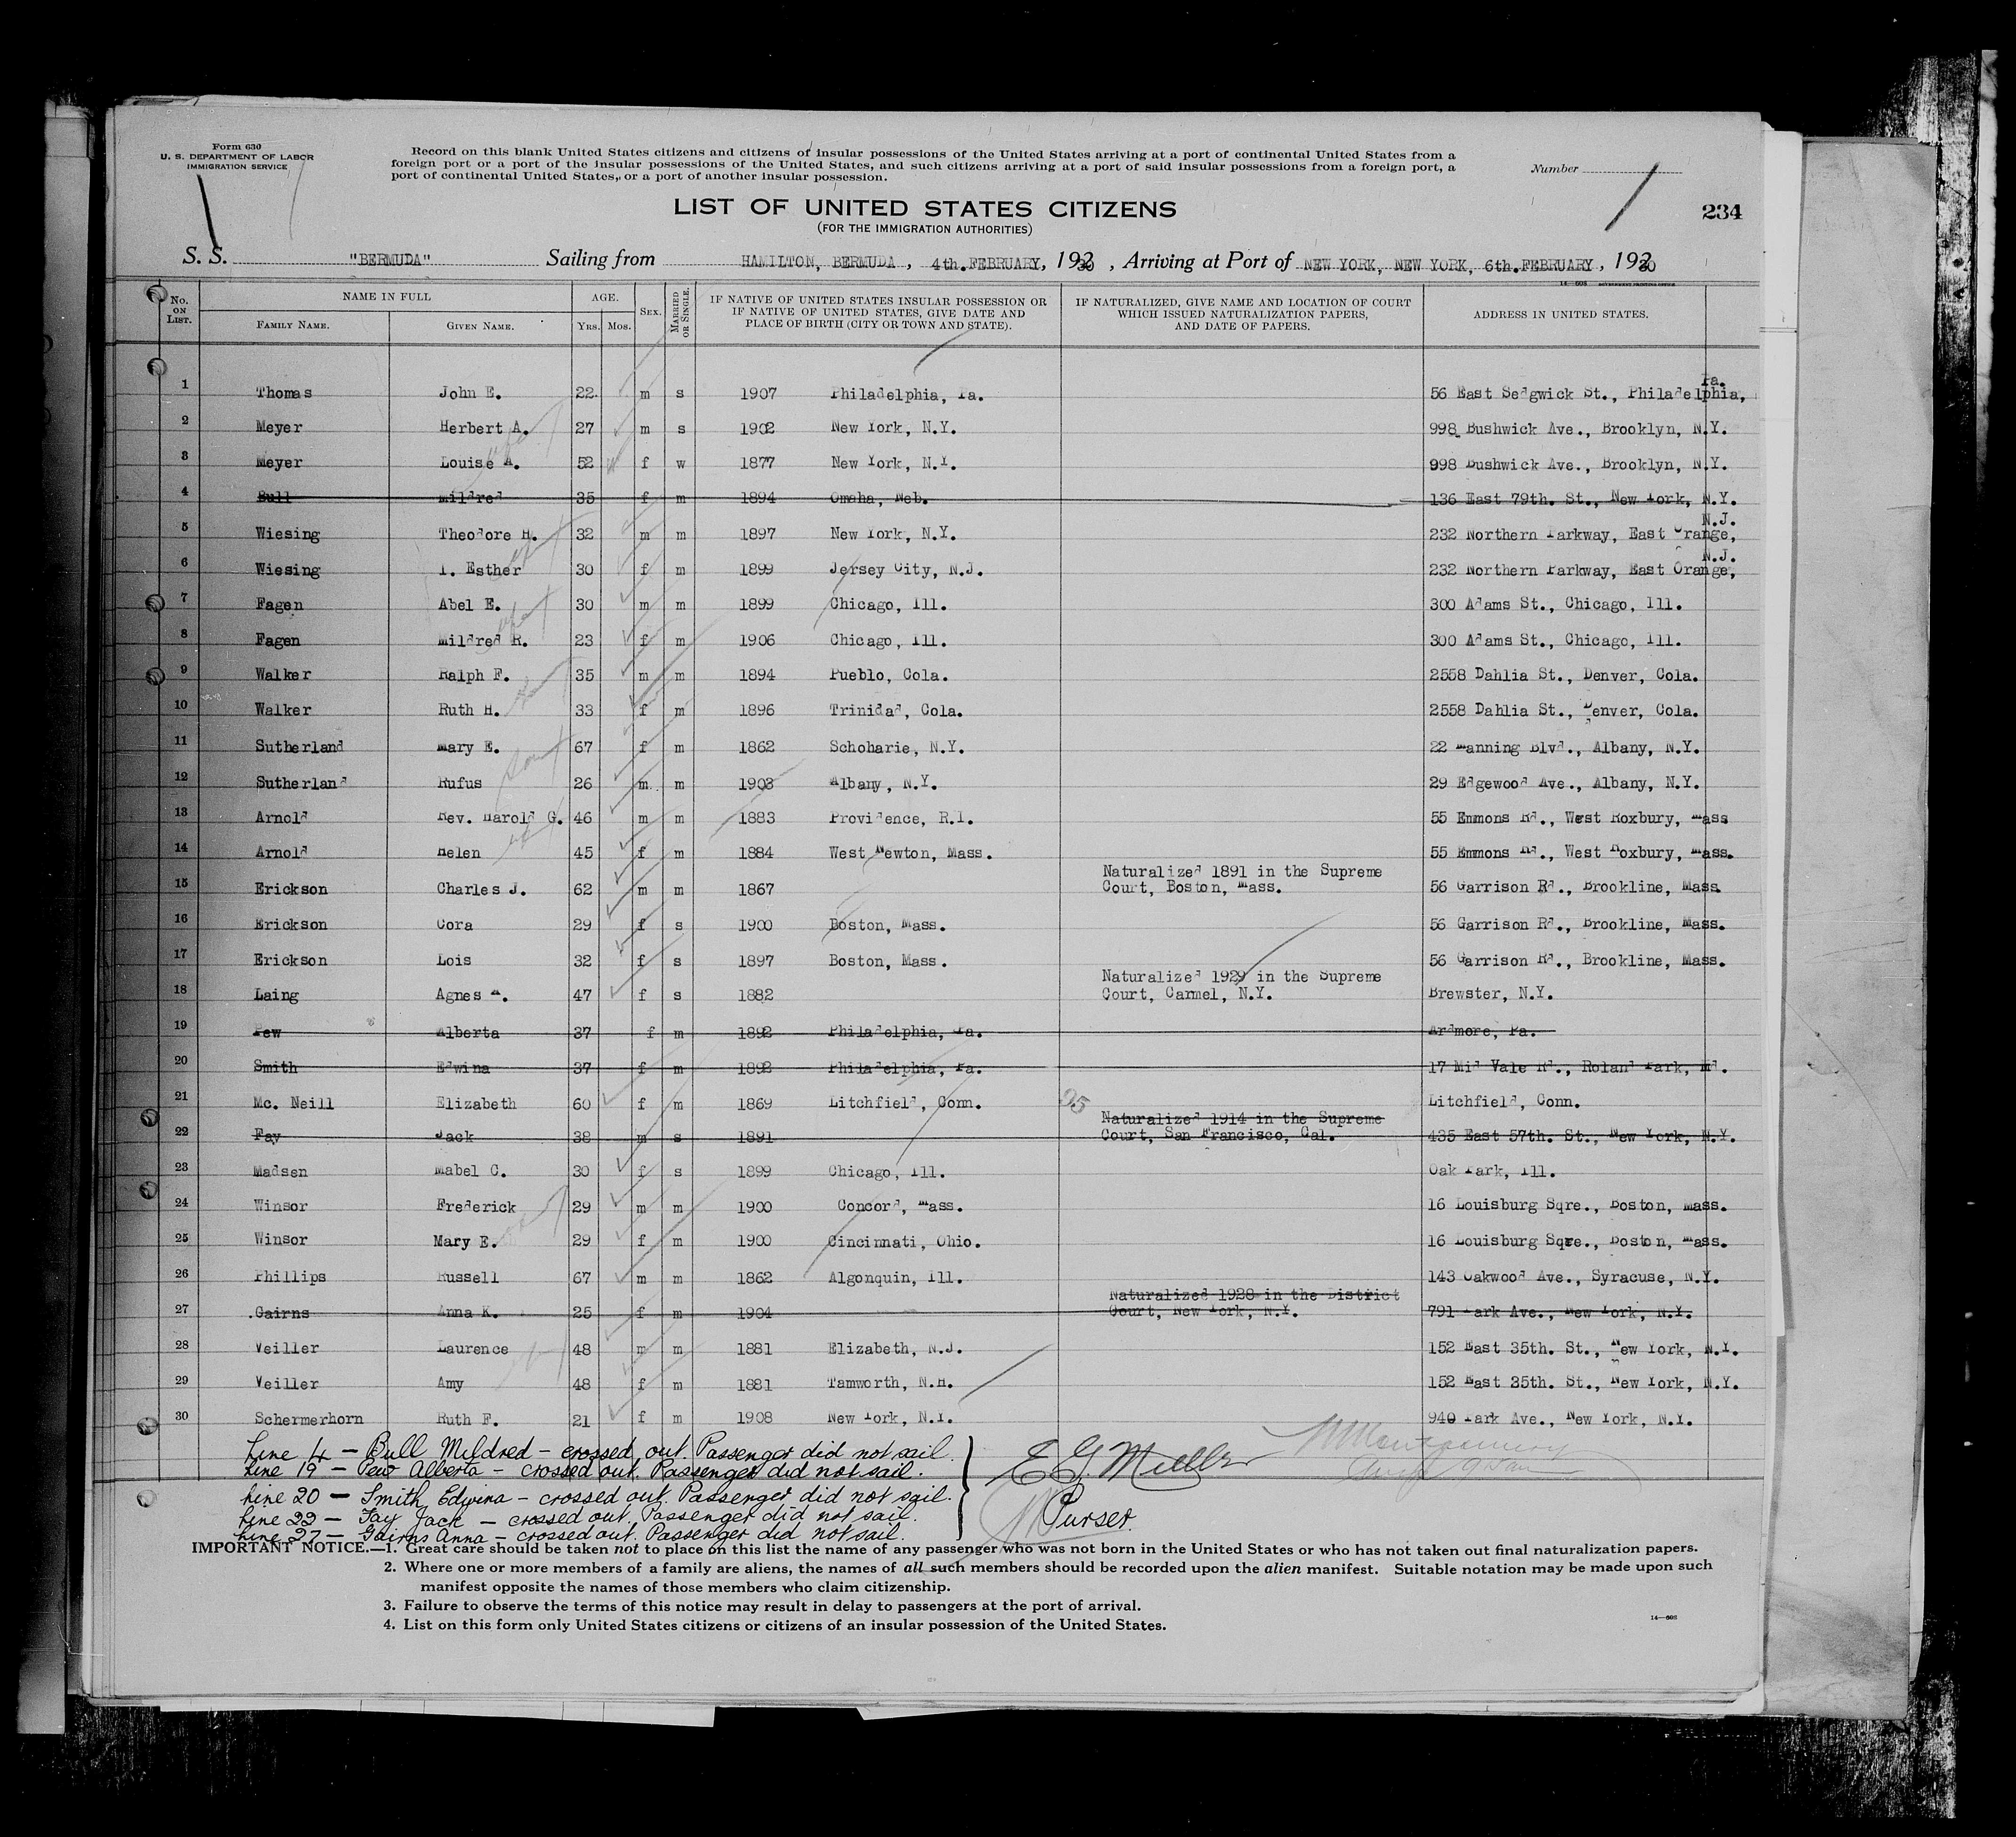 Form 630
U. S. DEPARTMENT OF LABOR
IMMIGRATION SERVICE
Record on this blank United States citizens and citizens of insular possessions of the United States arriving at a port of continental United States from a
foreign port or a port of the insular possessions of the United States, and such citizens arriving at a port of said insular possessions from a foreign port, a
port of continental United States, or a port of another insular possession.
Number
LIST OF UNITED STATES CITIZENS
(FOR THE IMMIGRATION AUTHORITIES)
234
S. S. "BERMUDA" Sailing from HAMILTON, BERMUDA, 4th.FEBRUARY, 1930, Arriving at Port of NEW YORK, NEW YORK, 6th.FEBRUARY, 1930
14—608 GOVERNMENT PRINTING OFFICE
No. ON LIST. NAME IN FULL FAMILY NAME. GIVEN NAME. AGE. YRS. MOS. SEX. MARRIED OR SINGLE. IF NATIVE OF UNITED STATES INSULAR POSSESSION OR IF NATIVE OF UNITED STATES, GIVE DATE AND PLACE OF BIRTH (CITY OR TOWN AND STATE). IF NATURALIZED, GIVE NAME AND LOCATION OF COURT WHICH ISSUED NATURALIZATION PAPERS, AND DATE OF PAPERS. ADDRESS IN UNITED STATES.
1 Thomas John E. 22 m s 1907 Philadelphia, Pa. 56 East Sedgwick St., Philadelphia, Pa.
2 Meyer Herbert A. 27 m s 1902 New York, N.Y. 998 Bushwick Ave., Brooklyn, N.Y.
3 Meyer Louise A. 52 f w 1877 New York, N.Y. 998 Bushwick Ave., Brooklyn, N.Y.
4 Bull Mildred 35 f m 1894 Omaha, Neb. 136 East 79th. St., New York, N.Y.
5 Wiesing Theodore H. 32 m m 1897 New York, N.Y. 232 Northern Parkway, East Orange, N.J.
6 Wiesing I. Esther 30 f m 1899 Jersey City, N.J. 232 Northern Parkway, East Orange, N.J.
7 Fagen Abel E. 30 m m 1899 Chicago, Ill. 300 Adams St., Chicago, Ill.
8 Fagen Mildred R. 23 f m 1906 Chicago, Ill. 300 Adams St., Chicago, Ill.
9 Walker Ralph F. 35 m m 1894 Pueblo, Cola. 2558 Dahlia St., Denver, Cola.
10 Walker Ruth H. 33 f m 1896 Trinidad, Cola. 2558 Dahlia St., Denver, Cola.
11 Sutherland Mary E. 67 f m 1862 Schoharie, N.Y. 22 Manning Blvd., Albany, N.Y.
12 Sutherland Rufus 26 m m 1903 Albany, N.Y. 29 Edgewood Ave., Albany, N.Y.
13 Arnold Rev. Harold G. 46 m m 1883 Providence, R.I. 55 Emmons Rd., West Roxbury, Mass
14 Arnold Helen 45 f m 1884 West Newton, Mass. 55 Emmons Rd., West Roxbury, Mass.
15 Erickson Charles J. 62 m m 1867 Naturalized 1891 in the Supreme Court, Boston, Mass. 56 Garrison Rd., Brookline, Mass.
16 Erickson Cora 29 f s 1900 Boston, Mass. 56 Garrison Rd., Brookline, Mass.
17 Erickson Lois 32 f s 1897 Boston, Mass. 56 Garrison Rd., Brookline, Mass.
18 Laing Agnes A. 47 f s 1882 Naturalized 1929 in the Supreme Court, Carmel, N.Y. Brewster, N.Y.
19 Pew Alberta 37 f m 1892 Philadelphia, Pa. Ardmore, Pa.
20 Smith Edwina 37 f m 1892 Philadelphia, Pa. 17 Mid Vale Rd., Roland Park, Md.
21 Mc. Neill Elizabeth 60 f m 1869 Litchfield, Conn. Litchfield, Conn.
22 Fay Jack 38 m s 1891 Naturalized 1914 in the Supreme Court, San Francisco, Cal. 435 East 57th. St., New York, N.Y.
23 Madsen Mabel C. 30 f s 1899 Chicago, Ill. Oak Park, Ill.
24 Winsor Frederick 29 m m 1900 Concord, Mass. 16 Louisburg Sqre., Boston, Mass.
25 Winsor Mary E. 29 f m 1900 Cincinnati, Ohio. 16 Louisburg Sqre., Boston, Mass.
26 Phillips Russell 67 m m 1862 Algonquin, Ill. 143 Oakwood Ave., Syracuse, N.Y.
27 Gairns Anna K. 25 f m 1904 Naturalized 1928 in the District Court, New York, N.Y. 791 Park Ave., New York, N.Y.
28 Veiller Laurence 48 m m 1881 Elizabeth, N.J. 152 East 35th. St., New York, N.Y.
29 Veiller Amy 48 f m 1881 Tamworth, N.H. 152 East 35th. St., New York, N.Y.
30 Schermerhorn Ruth F. 21 f m 1908 New York, N.Y. 940 Park Ave., New York, N.Y.
Line 4 — Bull Mildred — crossed out. Passenger did not sail.
Line 19 — Pew Alberta — crossed out. Passenger did not sail.
Line 20 — Smith Edwina — crossed out. Passenger did not sail.
Line 22 — Fay Jack — crossed out. Passenger did not sail.
Line 27 — Gairns Anna — crossed out. Passenger did not sail.
Purser.
IMPORTANT NOTICE.—1. Great care should be taken not to place on this list the name of any passenger who was not born in the United States or who has not taken out final naturalization papers.
2. Where one or more members of a family are aliens, the names of all such members should be recorded upon the alien manifest. Suitable notation may be made upon such
manifest opposite the names of those members who claim citizenship.
3. Failure to observe the terms of this notice may result in delay to passengers at the port of arrival.
4. List on this form only United States citizens or citizens of an insular possession of the United States.
14—608